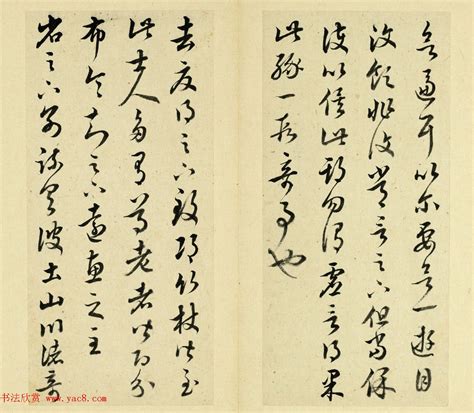 欲逼耳以爾要欲一遊目
汶領非復常言足下但當保
護以俟此期勿謂虛言得果
此緣一段奇事也
去夏得足下致邛竹杖皆至
此士人多有尊老者皆即分
布令知足下遠惠之至
省足下別疏具彼土山川諸奇
书法欣赏 www.yac8.com